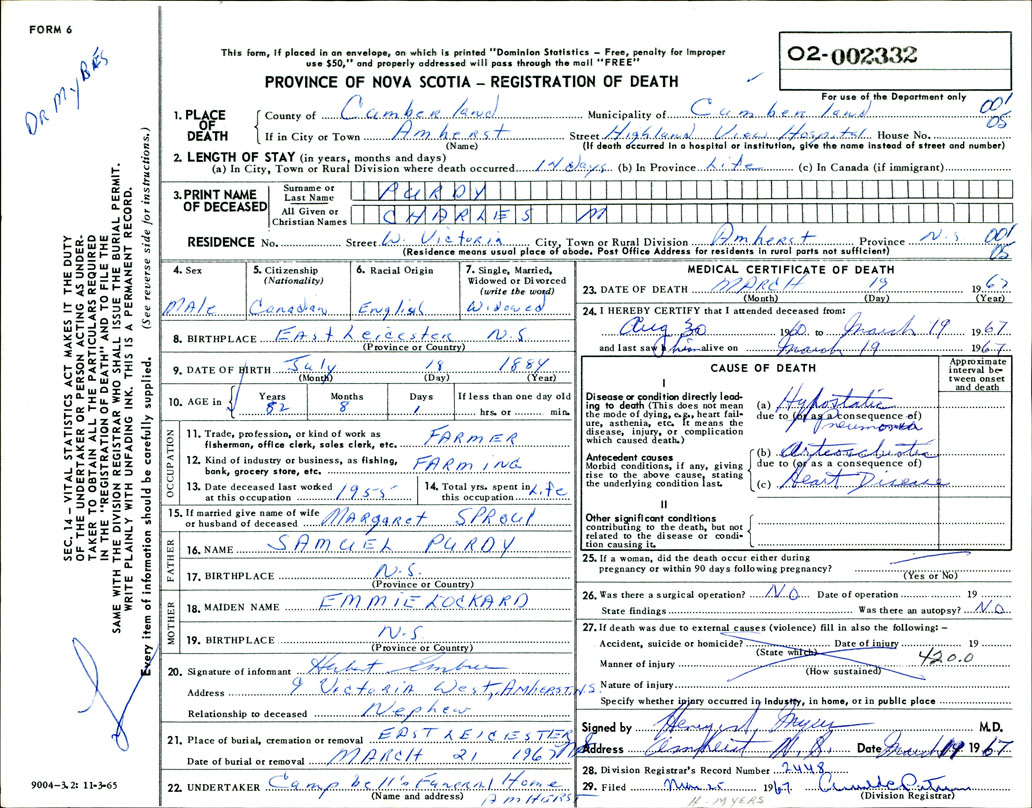 FORM 6
DR MYERS
This form, if placed in an envelope, on which is printed "Dominion Statistics – Free, penalty for improper
use $50," and properly addressed will pass through the mail "FREE"
O2-002332
PROVINCE OF NOVA SCOTIA – REGISTRATION OF DEATH
For use of the Department only
001
05
1. PLACE OF DEATH
County of Cumberland Municipality of Cumberland
If in City or Town Amherst Street Highland View Hospital House No.
(Name) (If death occurred in a hospital or institution, give the name instead of street and number)
2. LENGTH OF STAY (in years, months and days)
(a) In City, Town or Rural Division where death occurred 14 days (b) In Province Life (c) In Canada (if immigrant)
3. PRINT NAME OF DECEASED
Surname or Last Name PURDY
All Given or Christian Names CHARLES M
RESIDENCE No. Street W. Victoria City, Town or Rural Division Amherst Province N.S 001
05
(Residence means usual place of abode. Post Office Address for residents in rural parts not sufficient)
SEC. 14 – VITAL STATISTICS ACT MAKES IT THE DUTY
OF THE UNDERTAKER OR PERSON ACTING AS UNDER-
TAKER TO OBTAIN ALL THE PARTICULARS REQUIRED
IN THE "REGISTRATION OF DEATH" AND TO FILE THE
SAME WITH THE DIVISION REGISTRAR WHO SHALL ISSUE THE BURIAL PERMIT.
WRITE PLAINLY WITH UNFADING INK. THIS IS A PERMANENT RECORD.
Every item of information should be carefully supplied. (See reverse side for instructions.)
4. Sex
Male
5. Citizenship
(Nationality)
Canadian
6. Racial Origin
English
7. Single, Married,
Widowed or Divorced
(write the word)
Widowed
8. BIRTHPLACE East Leicester N.S
(Province or Country)
9. DATE OF BIRTH July 18 1884
(Month) (Day) (Year)
10. AGE in
Years Months Days If less than one day old
82 8 1 hrs. or min.
OCCUPATION
11. Trade, profession, or kind of work as
fisherman, office clerk, sales clerk, etc. FARMER
12. Kind of industry or business, as fishing,
bank, grocery store, etc. FARMING
13. Date deceased last worked
at this occupation 1955
14. Total yrs. spent in
this occupation Life
15. If married give name of wife
or husband of deceased Margaret SPROUL
FATHER
16. NAME SAMUEL PURDY
17. BIRTHPLACE N.S.
(Province or Country)
MOTHER
18. MAIDEN NAME EMMIE LOCKARD
19. BIRTHPLACE N.S.
(Province or Country)
20. Signature of informant Herbert Embree
Address 9 Victoria West, Amherst, N.S.
Relationship to deceased Nephew
21. Place of burial, cremation or removal EAST LEICESTER
Date of burial or removal MARCH 21 1967
22. UNDERTAKER Campbell's Funeral Home
(Name and address) AMHERST
9004–3.2: 11-3-65
MEDICAL CERTIFICATE OF DEATH
23. DATE OF DEATH MARCH 19 1967
(Month) (Day) (Year)
24. I HEREBY CERTIFY that I attended deceased from:
Aug 30 1960 to March 19 1967
and last saw him alive on March 19 1967
CAUSE OF DEATH
Approximate
interval be-
tween onset
and death
I
Disease or condition directly lead-
ing to death (This does not mean
the mode of dying, e.g., heart fail-
ure, asthenia, etc. It means the
disease, injury, or complication
which caused death.)
(a) Hypostatic
due to (or as a consequence of)
pneumonia
Antecedent causes
Morbid conditions, if any, giving
rise to the above cause, stating
the underlying condition last.
(b) Arteriosclerotic
due to (or as a consequence of)
(c) Heart Disease
II
Other significant conditions
contributing to the death, but not
related to the disease or condi-
tion causing it.
25. If a woman, did the death occur either during
pregnancy or within 90 days following pregnancy?
(Yes or No)
26. Was there a surgical operation? NO Date of operation 19
State findings Was there an autopsy? NO
27. If death was due to external causes (violence) fill in also the following: –
Accident, suicide or homicide? Date of injury 19
(State which)
Manner of injury 420.0
(How sustained)
Nature of injury
Specify whether injury occurred in industry, in home, or in public place
Signed by Myers M.D.
Address Amherst N.S. Date March 19 1967
28. Division Registrar's Record Number 2448
29. Filed Mar 25 1967
(Division Registrar)
H. MYERS